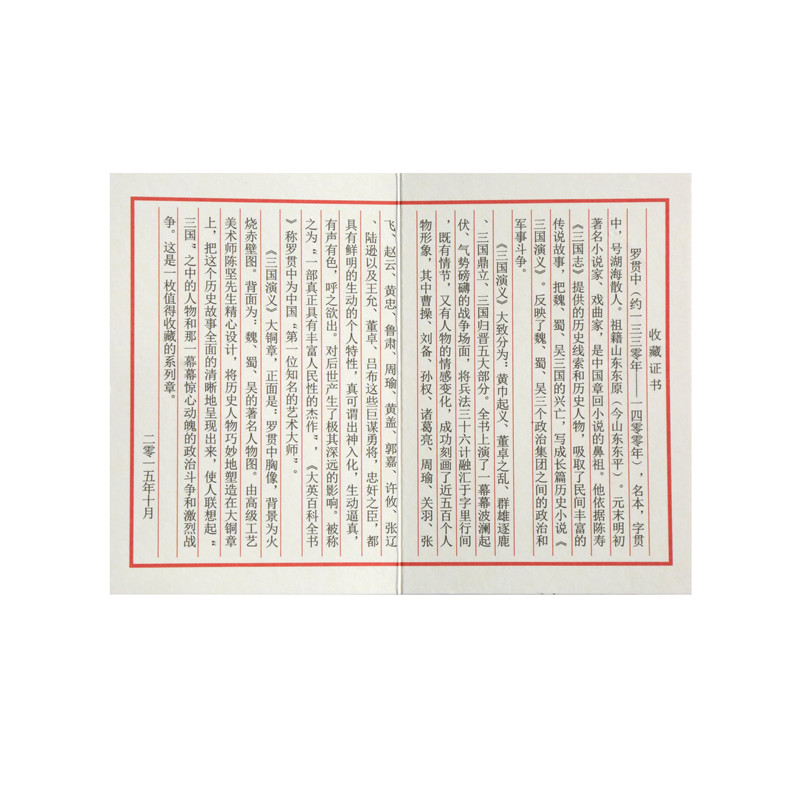 收藏证书
罗贯中（约一三三零年——一四零零年），名本，字贯
中，号湖海散人。祖籍山东东原（今山东东平）。元末明初
著名小说家、戏曲家，是中国章回小说的鼻祖。他依据陈寿
《三国志》提供的历史线索和历史人物，吸取了民间丰富的
传说故事，把魏、蜀、吴三国的兴亡，写成长篇历史小说《
三国演义》。反映了魏、蜀、吴三个政治集团之间的政治和
军事斗争。
《三国演义》大致分为：黄巾起义、董卓之乱、群雄逐鹿
、三国鼎立、三国归晋五大部分。全书上演了一幕幕波澜起
伏、气势磅礴的战争场面，将兵法三十六计融汇于字里行间
，既有情节，又有人物的情感变化，成功刻画了近五百个人
物形象，其中曹操、刘备、孙权、诸葛亮、周瑜、关羽、张
飞、赵云、黄忠、鲁肃、周瑜、黄盖、郭嘉、许攸、张辽
、陆逊以及王允、董卓、吕布这些巨谋勇将，忠奸之臣，都
具有鲜明的生动的个人特性，真可谓出神入化，生动逼真，
有声有色，呼之欲出。对后世产生了极其深远的影响。被称
之为“一部真正具有丰富人民性的杰作”，《大英百科全书
》称罗贯中为中国“第一位知名的艺术大师”。
《三国演义》大铜章，正面是：罗贯中胸像，背景为火
烧赤壁图。背面为：魏、蜀、吴的著名人物图。由高级工艺
美术师陈坚先生精心设计，将历史人物巧妙地塑造在大铜章
上，把这个历史故事全面的清晰地呈现出来，使人联想起“
三国”之中的人物和那一幕幕惊心动魄的政治斗争和激烈战
争。这是一枚值得收藏的系列章。
二零一五年十月